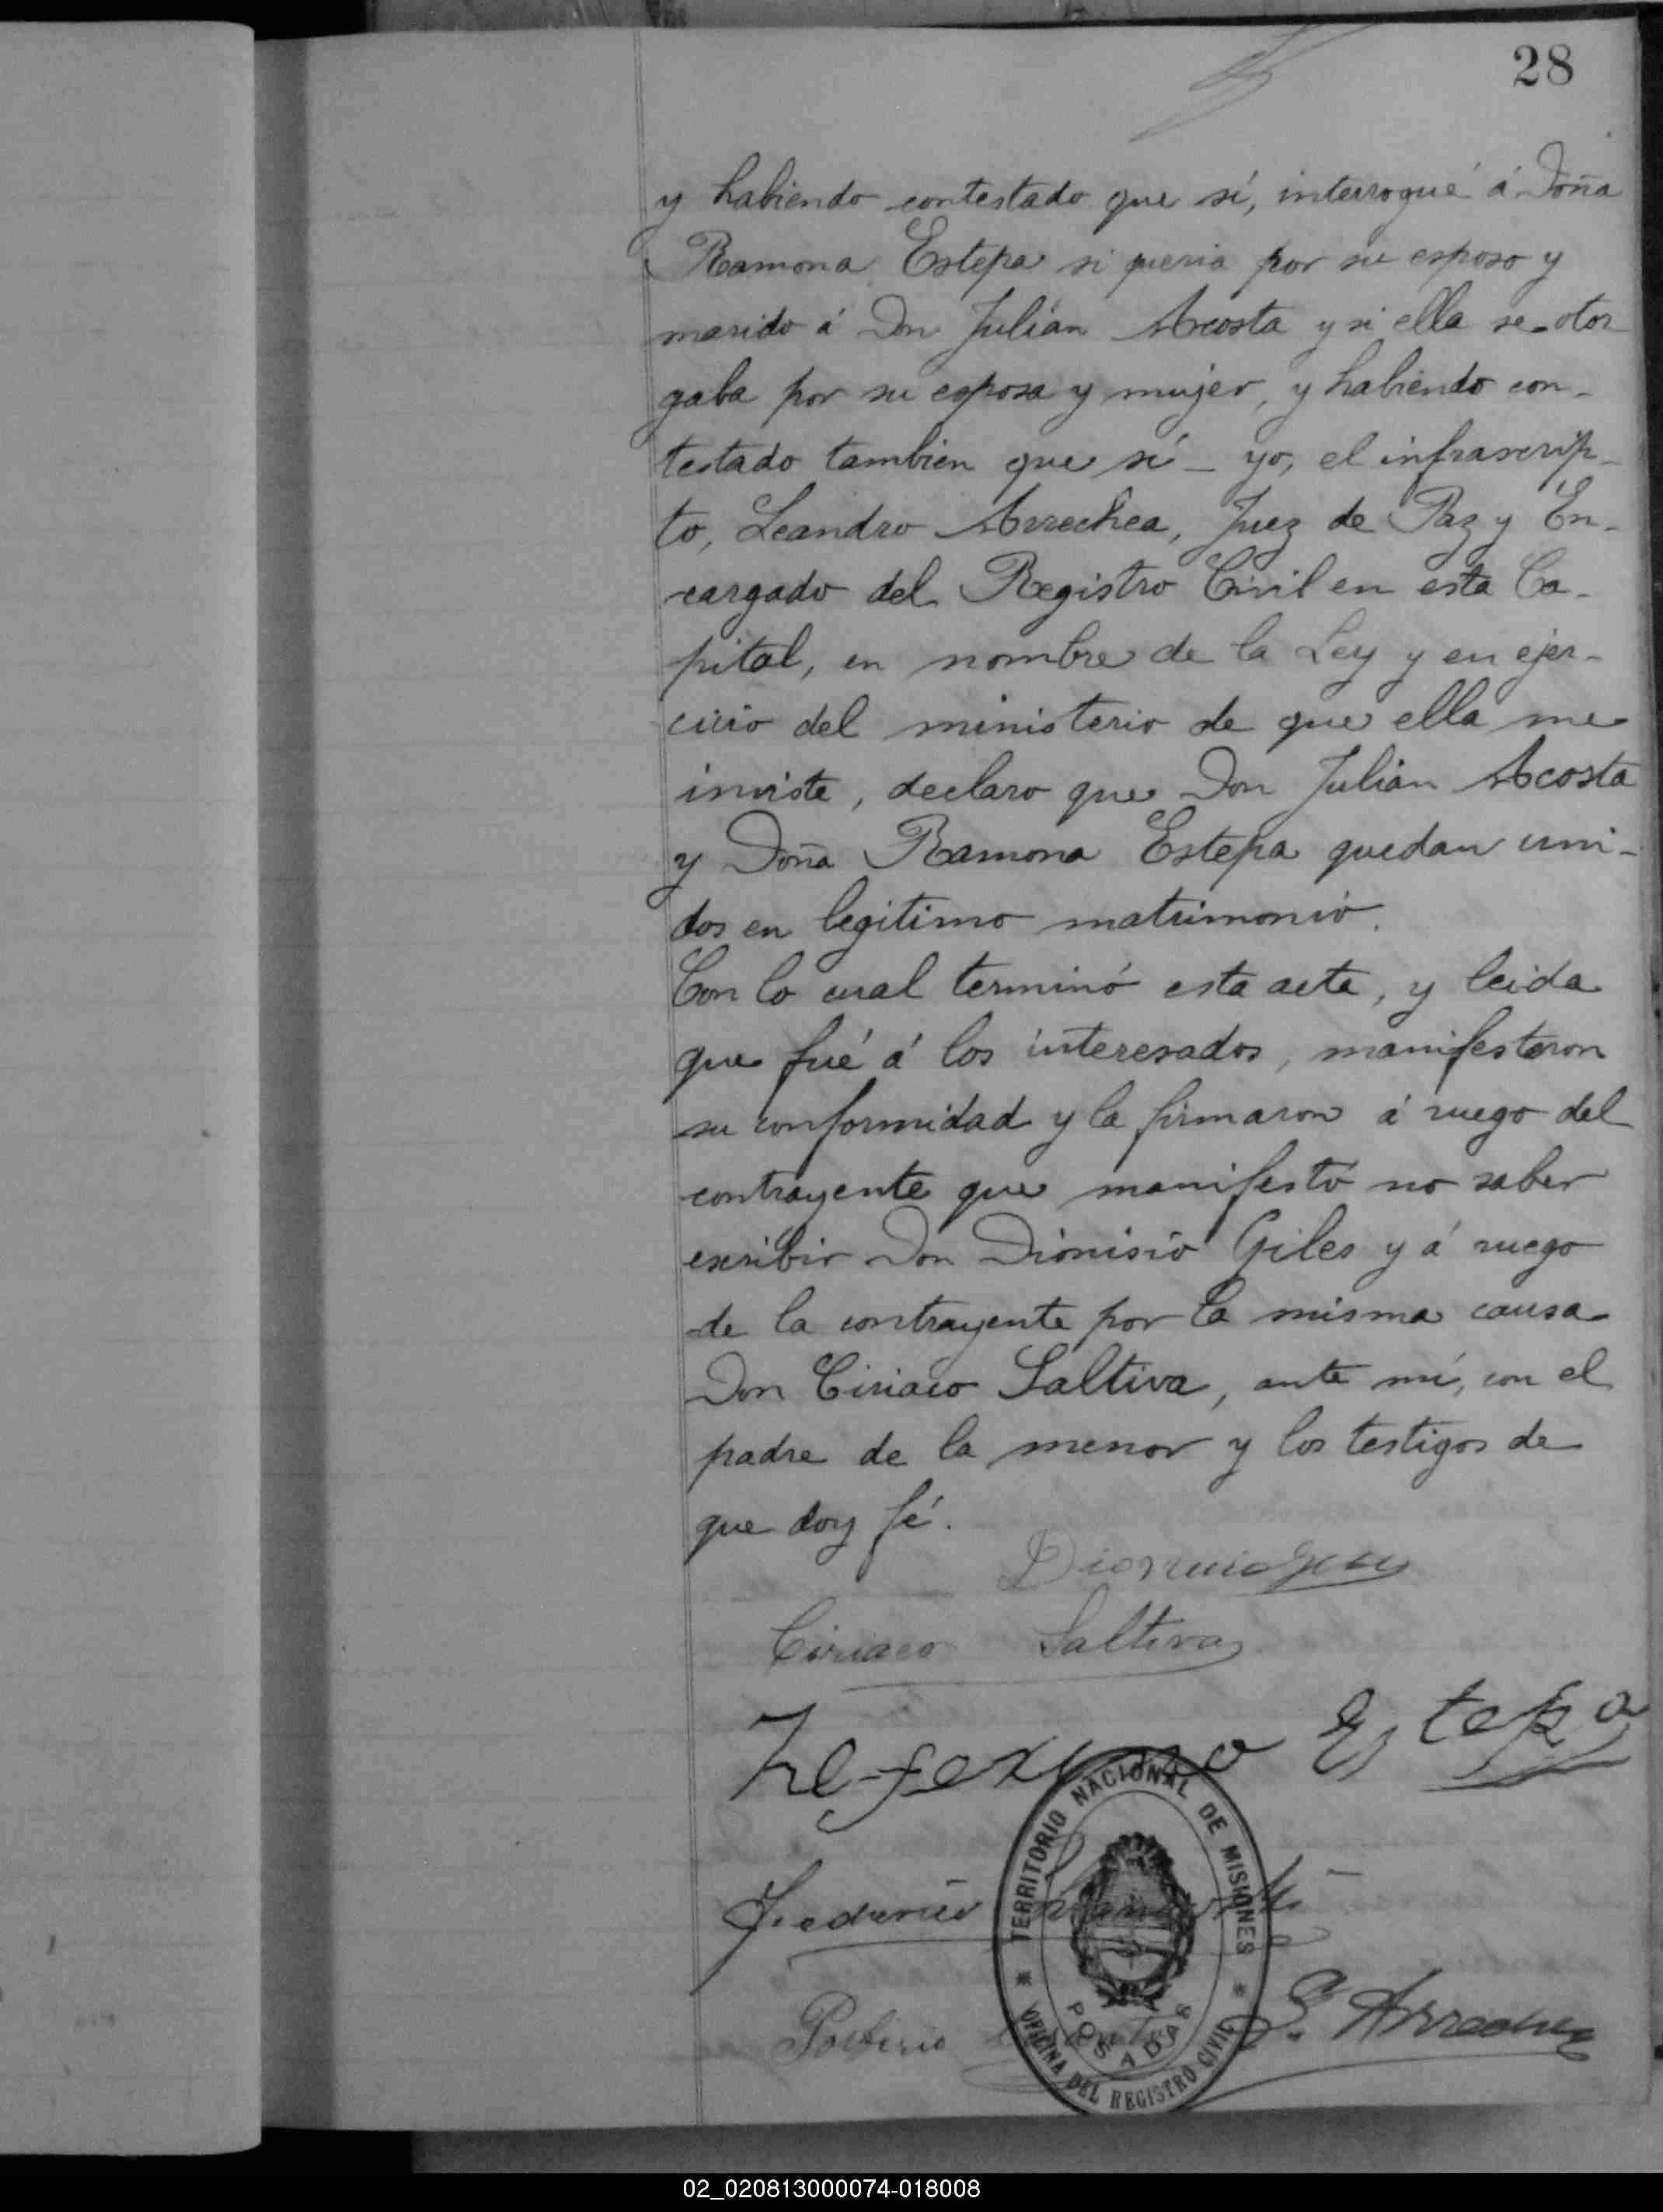 28
y habiendo contestado que sí, interrogué á Doña
Ramona Estepa si queria por su esposo y
marido á Don Julián Acosta y si ella se otor
gaba por su esposa y mujer, y habiendo con-
testado tambien que sí - yo, el infrascrip-
to, Leandro Arrechea, Juez de Paz y En-
cargado del Registro Civil en esta Ca-
pital, en nombre de la Ley y en ejer-
cicio del ministerio de que ella me
inviste, declaro que Don Julián Acosta
y Doña Ramona Estepa quedan uni-
dos en legitimo matrimonio.
Con lo cual terminó esta acta, y leida
que fué á los interesados, manifestaron
su conformidad y la firmaron á ruego del
contrayente que manifestó no saber
escribir Don Dionisio Giles y á ruego
de la contrayente por la misma causa
Don Ciriaco Saltiva, ante mí, con el
padre de la menor y los testigos de
que doy fé.
Ciriaco Saltiva
Estepa
Federico
Porfirio
L. Arrechea
TERRITORIO NACIONAL DE MISIONES
POSADAS
OFICINA DEL REGISTRO CIVIL
02_020813000074-018008